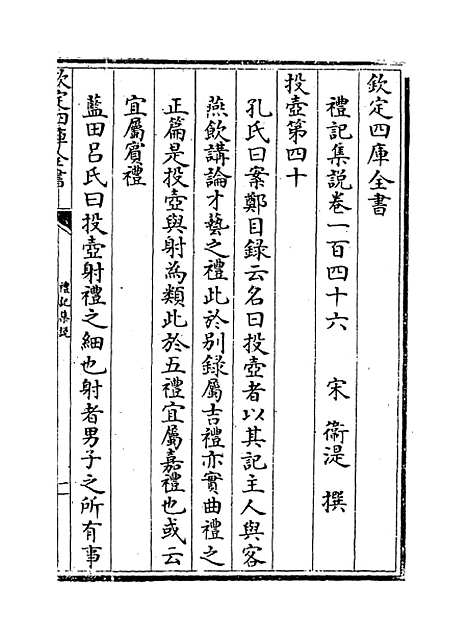 欽定四庫全書
禮記集說卷一百四十六 宋 衛湜 撰
投壺第四十
孔氏曰案鄭目録云名曰投壺者以其記主人與客
燕飲講論才藝之禮此於別録屬吉禮亦實曲禮之
正篇是投壺與射為類此於五禮宜屬嘉禮也或云
宜屬賓禮
藍田呂氏曰投壺射禮之細也射者男子之所有事
欽定四庫全書
禮記集説
一